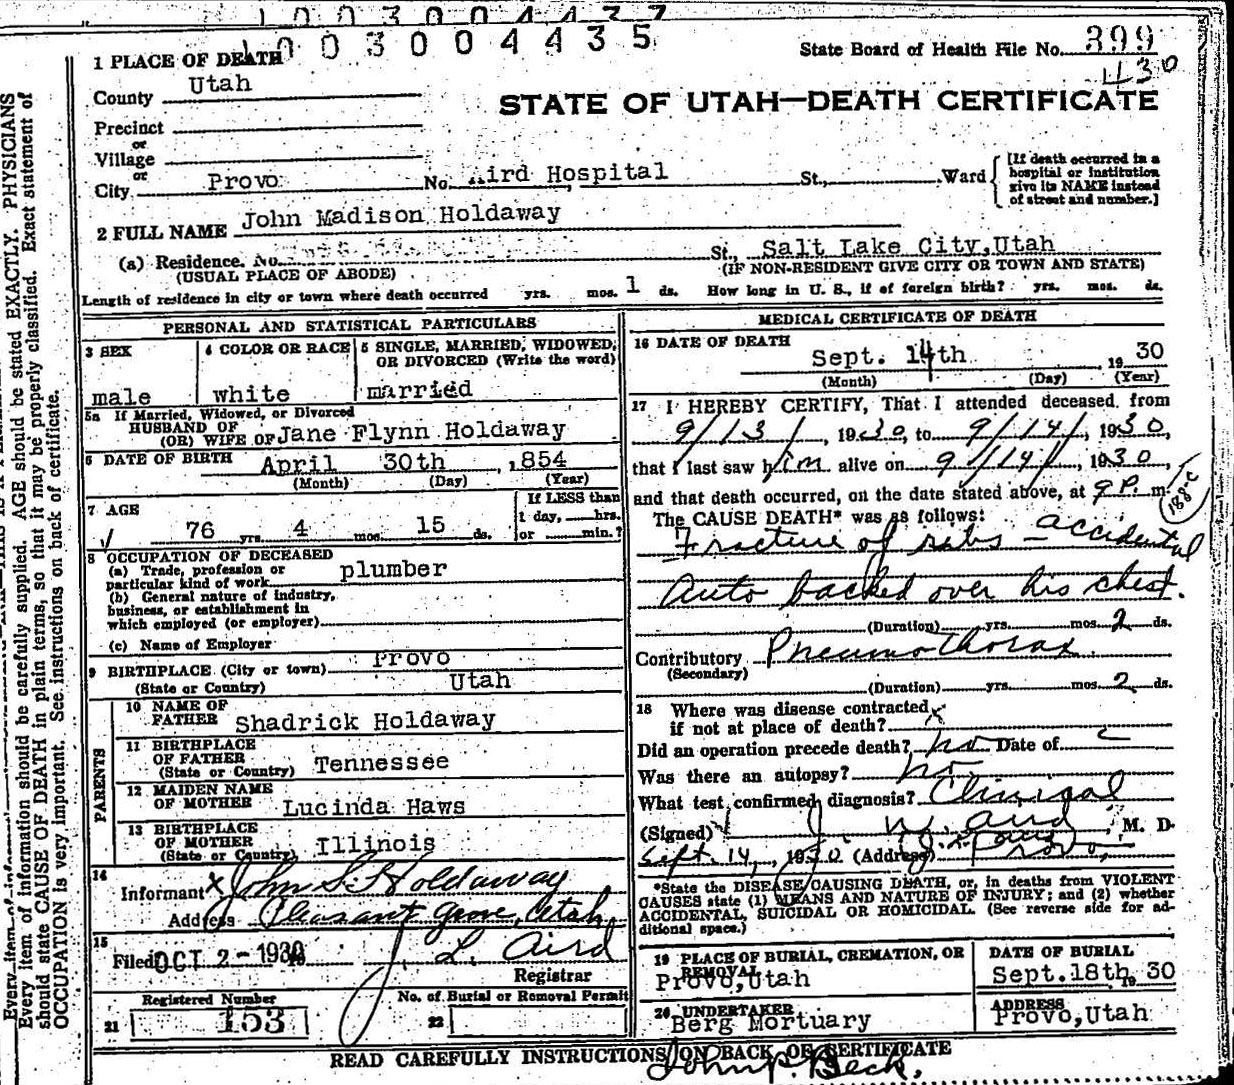 1003004435
State Board of Health File No. 399
430
1 PLACE OF DEATH
County Utah
STATE OF UTAH—DEATH CERTIFICATE
Precinct
or
Village
or
City Provo No. Aird Hospital St., Ward
[If death occurred in a hospital or institution give its NAME instead of street and number.]
2 FULL NAME John Madison Holdaway
(a) Residence. No. St., Salt Lake City, Utah
(USUAL PLACE OF ABODE) (IF NON-RESIDENT GIVE CITY OR TOWN AND STATE)
Length of residence in city or town where death occurred yrs. mos. 1 ds. How long in U. S., if of foreign birth? yrs. mos. ds.
PERSONAL AND STATISTICAL PARTICULARS
3 SEX male
4 COLOR OR RACE white
5 SINGLE, MARRIED, WIDOWED, OR DIVORCED (Write the word) married
5a If Married, Widowed, or Divorced
HUSBAND OF
(OR) WIFE OF Jane Flynn Holdaway
6 DATE OF BIRTH April 30th, 1854
(Month) (Day) (Year)
7 AGE 76 yrs. 4 mos. 15 ds.
If LESS than 1 day, hrs. or min.?
8 OCCUPATION OF DECEASED
(a) Trade, profession or particular kind of work plumber
(b) General nature of industry, business, or establishment in which employed (or employer)
(c) Name of Employer
9 BIRTHPLACE (City or town) Provo
(State or Country) Utah
PARENTS
10 NAME OF FATHER Shadrick Holdaway
11 BIRTHPLACE OF FATHER (State or Country) Tennessee
12 MAIDEN NAME OF MOTHER Lucinda Haws
13 BIRTHPLACE OF MOTHER (State or Country) Illinois
14 Informant x John S. Holdaway
Address Pleasant Grove, Utah
15 Filed OCT 2 - 1930 J. L. Aird
Registrar
Registered Number
21 153
No. of Burial or Removal Permit
22
MEDICAL CERTIFICATE OF DEATH
16 DATE OF DEATH Sept. 14th 1930
(Month) (Day) (Year)
17 I HEREBY CERTIFY, That I attended deceased from
9/13/, 1930, to 9/14/, 1930,
that I last saw him alive on 9/14/, 1930,
and that death occurred, on the date stated above, at 9 P. m.
188-c
The CAUSE DEATH* was as follows:
Fracture of ribs - accidental
Auto backed over his chest.
(Duration) yrs. mos. 2 ds.
Contributory Pneumothorax.
(Secondary)
(Duration) yrs. mos. 2 ds.
18 Where was disease contracted
if not at place of death? x
Did an operation precede death? no Date of
Was there an autopsy? no
What test confirmed diagnosis? Clinical
(Signed) J. W. Aird, M. D.
Sept. 14, 1930 (Address) Provo,
*State the DISEASE CAUSING DEATH, or, in deaths from VIOLENT
CAUSES state (1) MEANS AND NATURE OF INJURY; and (2) whether
ACCIDENTAL, SUICIDAL OR HOMICIDAL. (See reverse side for ad-
ditional space.)
19 PLACE OF BURIAL, CREMATION, OR REMOVAL
Provo, Utah
DATE OF BURIAL
Sept. 18th 1930
20 UNDERTAKER
Berg Mortuary
ADDRESS
Provo, Utah
READ CAREFULLY INSTRUCTIONS ON BACK OF CERTIFICATE
John P. Beck.
Every item of information should be carefully supplied. AGE should be stated EXACTLY. PHYSICIANS
should state CAUSE OF DEATH in plain terms, so that it may be properly classified. Exact statement of
OCCUPATION is very important. See instructions on back of certificate.